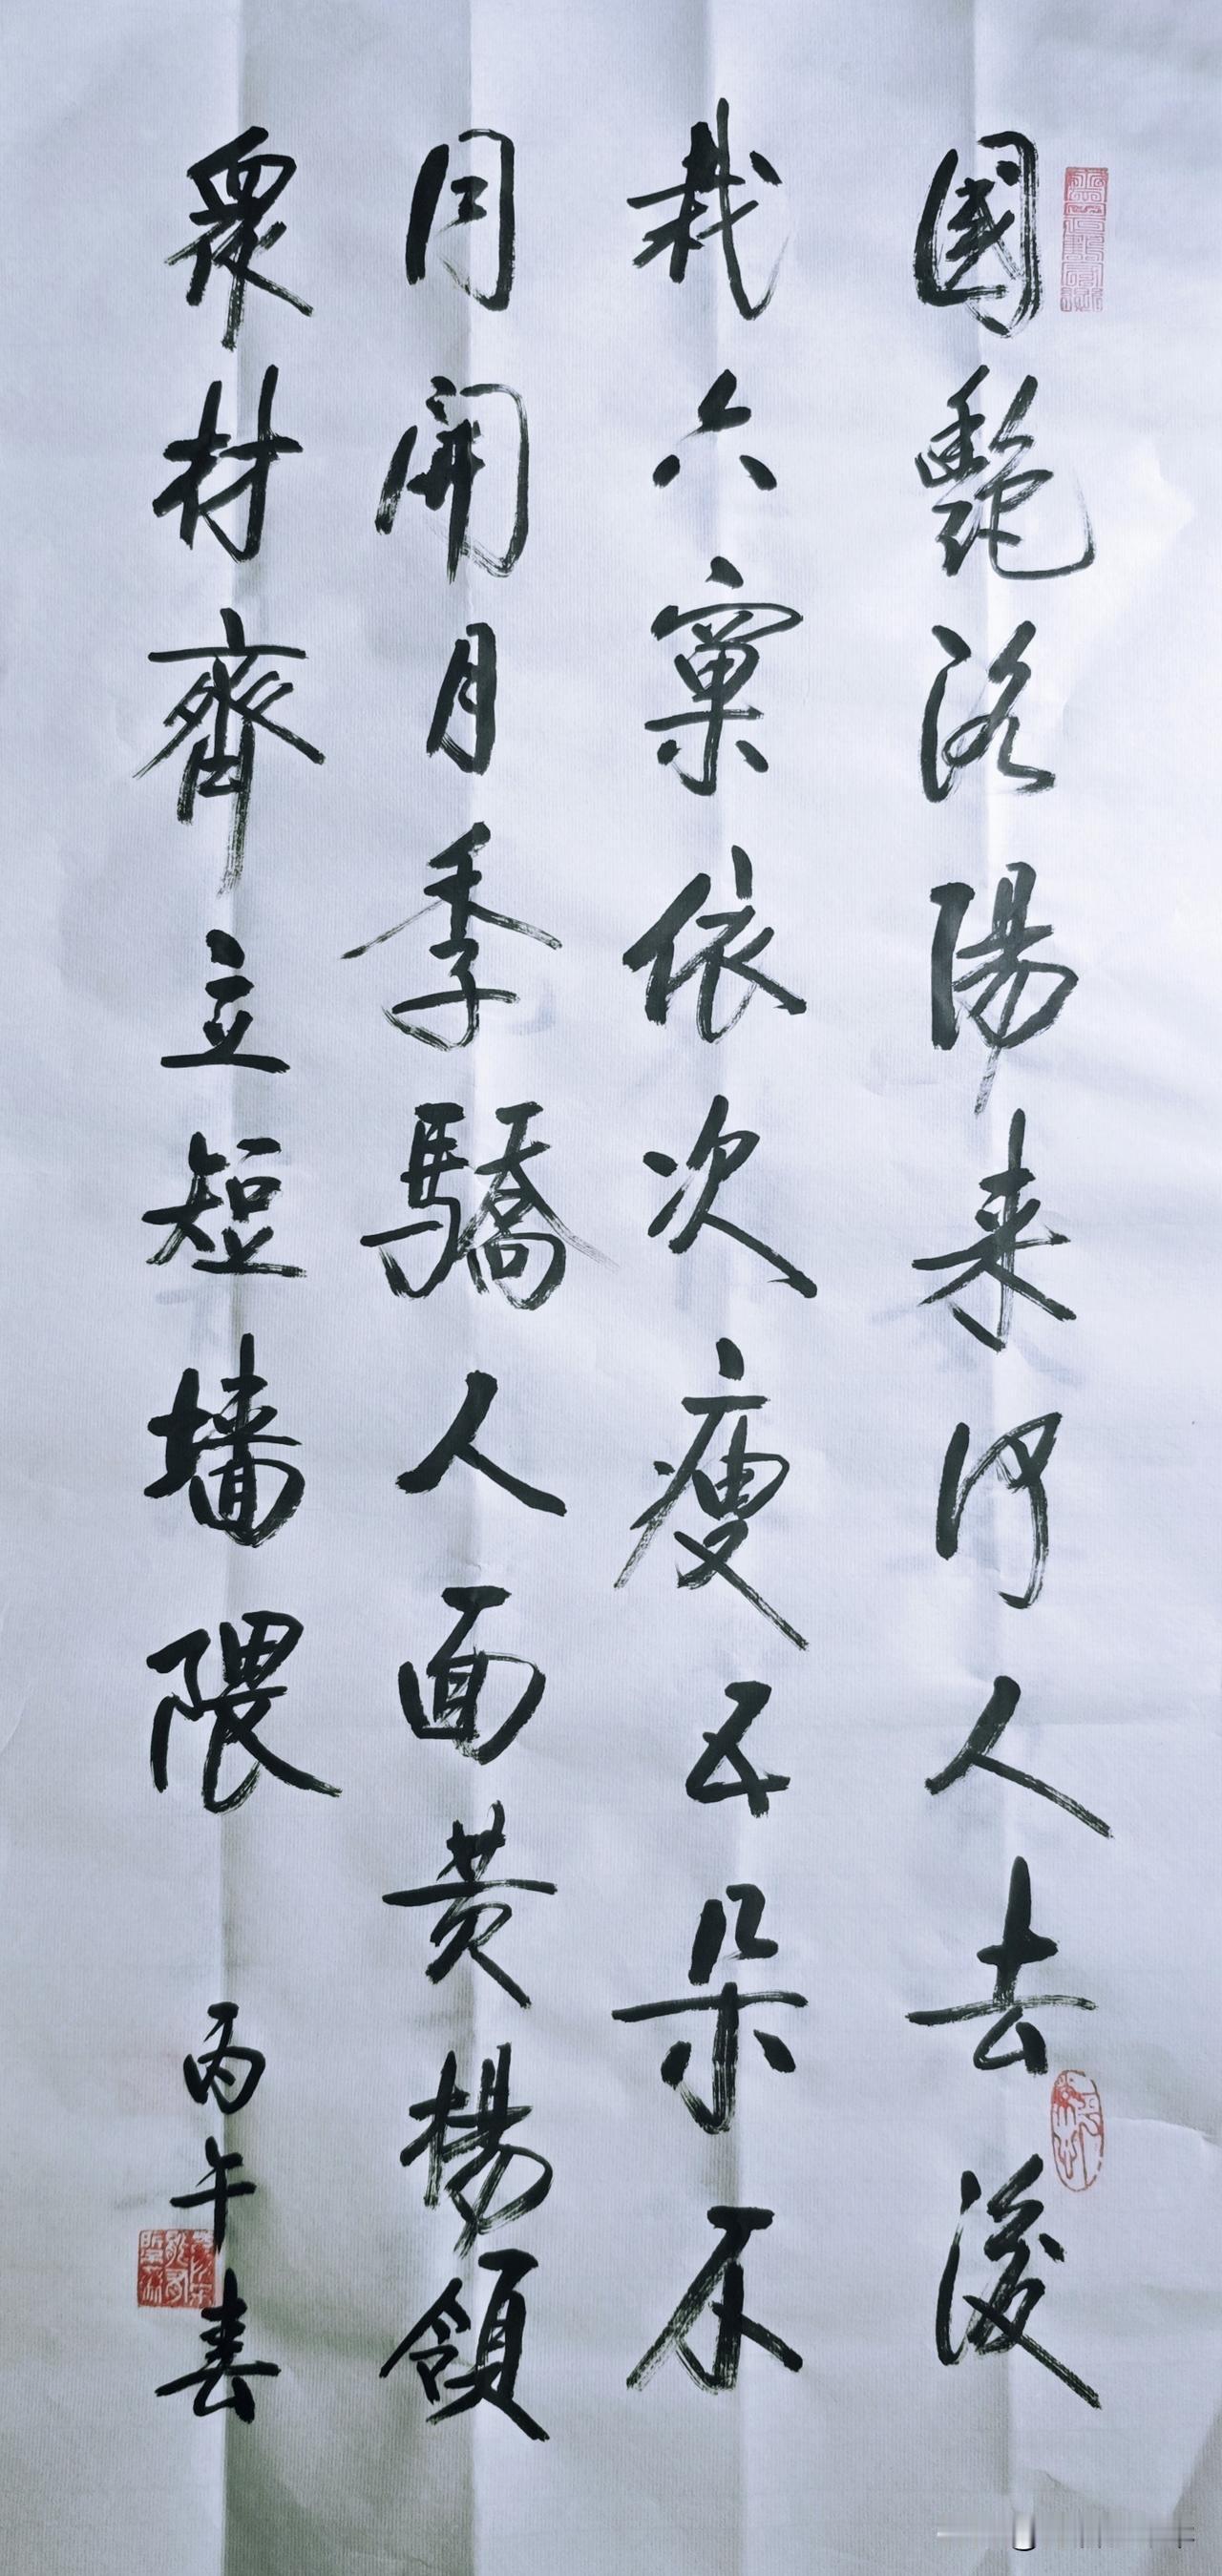 國艷洛陽来何人去後
栽六窠依次瘦五朵不
同開月季驕人面黄楊領
衆材齊立短墻隈
丙午春